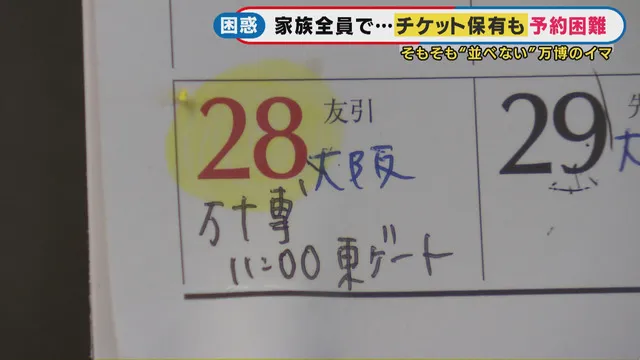 困惑 家族全員で…チケット保有も予約困難
そもそも“並べない”万博のイマ
28 友引
大阪
万博
11:00 東ゲート
29 先
大